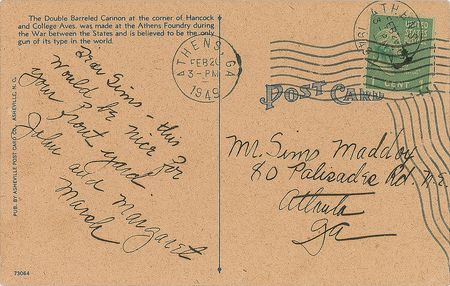 The Double Barreled Cannon at the corner of Hancock
and College Aves. was made at the Athens Foundry during
the War between the States and is believed to be the only
gun of its type in the world.
Dear Sims - this
Would be nice for
your front yard.
John and Margaret
Marsh
PUB. BY ASHEVILLE POST CARD CO., ASHEVILLE, N. C.
73064
ATHENS, GA
FEB 20
3-PM
1949
POST CARD
ATHENS
UNITED STATES
1 CENT
Mr. Sims Maddox
80 Palisades Rd. N.E.
Atlanta
Ga